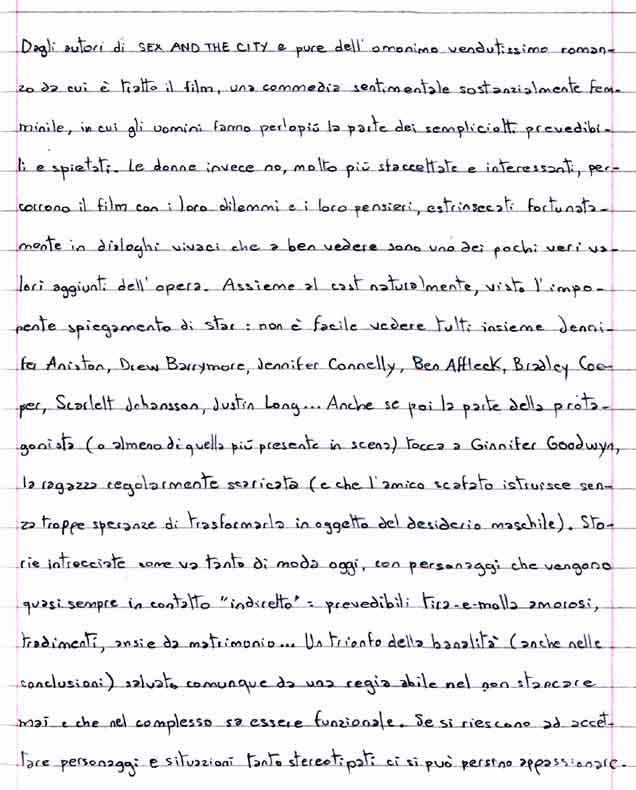 Dagli autori di SEX AND THE CITY e pure dell'omonimo vendutissimo roman-
zo da cui è tratto il film, una commedia sentimentale sostanzialmente fem-
minile, in cui gli uomini fanno perlopiù la parte dei sempliciotti prevedibi-
li e spietati. Le donne invece no, molto più sfaccettate e interessanti, per-
corrono il film con i loro dilemmi e i loro pensieri, estrinsecati fortunata-
mente in dialoghi vivaci che a ben vedere sono uno dei pochi veri va-
lori aggiunti dell'opera. Assieme al cast naturalmente, visto l'impo-
nente spiegamento di star: non è facile vedere tutti insieme Jenni-
fer Aniston, Drew Barrymore, Jennifer Connelly, Ben Affleck, Bradley Coo-
per, Scarlett Johansson, Justin Long... Anche se poi la parte della prota-
gonista (o almeno di quella più presente in scena) tocca a Ginnifer Goodwyn,
la ragazza regolarmente scaricata (e che l'amico scafato istruisce sen-
za troppe speranze di trasformarla in oggetto del desiderio maschile). Sto-
rie intrecciate come va tanto di moda oggi, con personaggi che vengono
quasi sempre in contatto "indiretto": prevedibili tira-e-molla amorosi,
tradimenti, ansie da matrimonio... Un trionfo della banalità (anche nelle
conclusioni) salvato comunque da una regia abile nel non stancare
mai e che nel complesso sa essere funzionale. Se si riescono ad accet-
tare personaggi e situazioni tanto stereotipati ci si può persino appassionare.